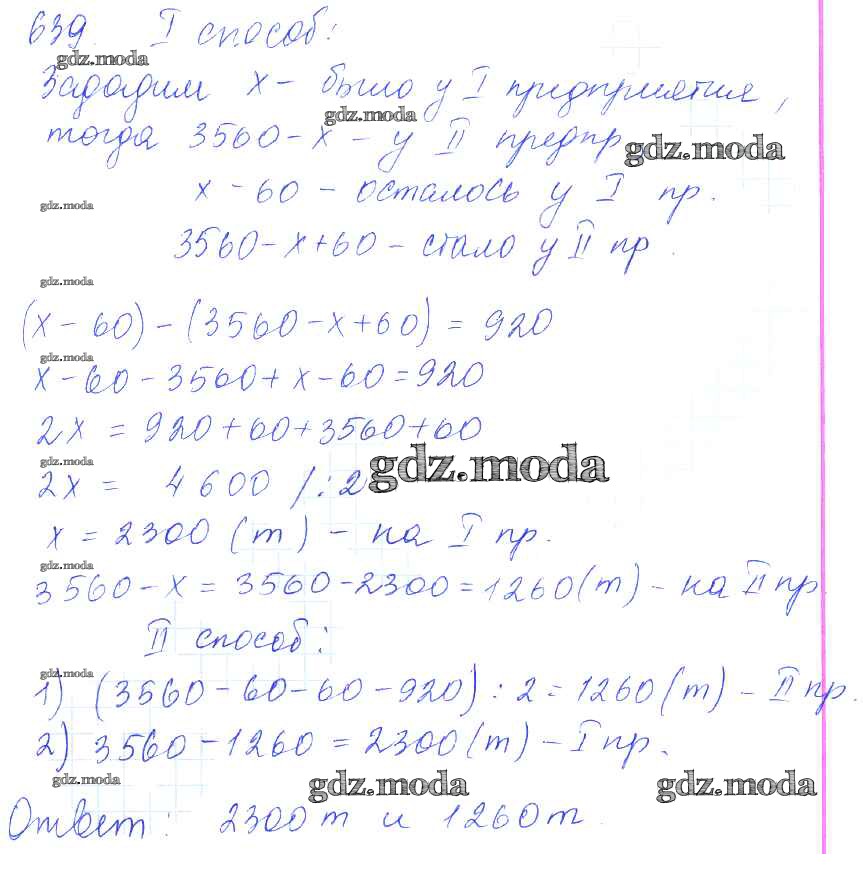 639. I способ:
gdz.moda
Зададим x - было у I предприятия,
gdz.moda
тогда 3560-x - у II предпр
gdz.moda
x-60 - осталось у I пр.
gdz.moda
3560-x+60 - стало у II пр.
gdz.moda
(x-60)-(3560-x+60)=920
gdz.moda
x-60-3560+x-60=920
2x = 920+60+3560+60
gdz.moda
gdz.moda
2x = 4600 /:2
x = 2300 (т) - на I пр.
gdz.moda
3560-x = 3560-2300=1260(т) - на II пр
II способ:
gdz.moda
1) (3560-60-60-920):2=1260(т) - II пр.
2) 3560-1260=2300(т) - I пр.
gdz.moda
gdz.moda
gdz.moda
Ответ: 2300т и 1260т.